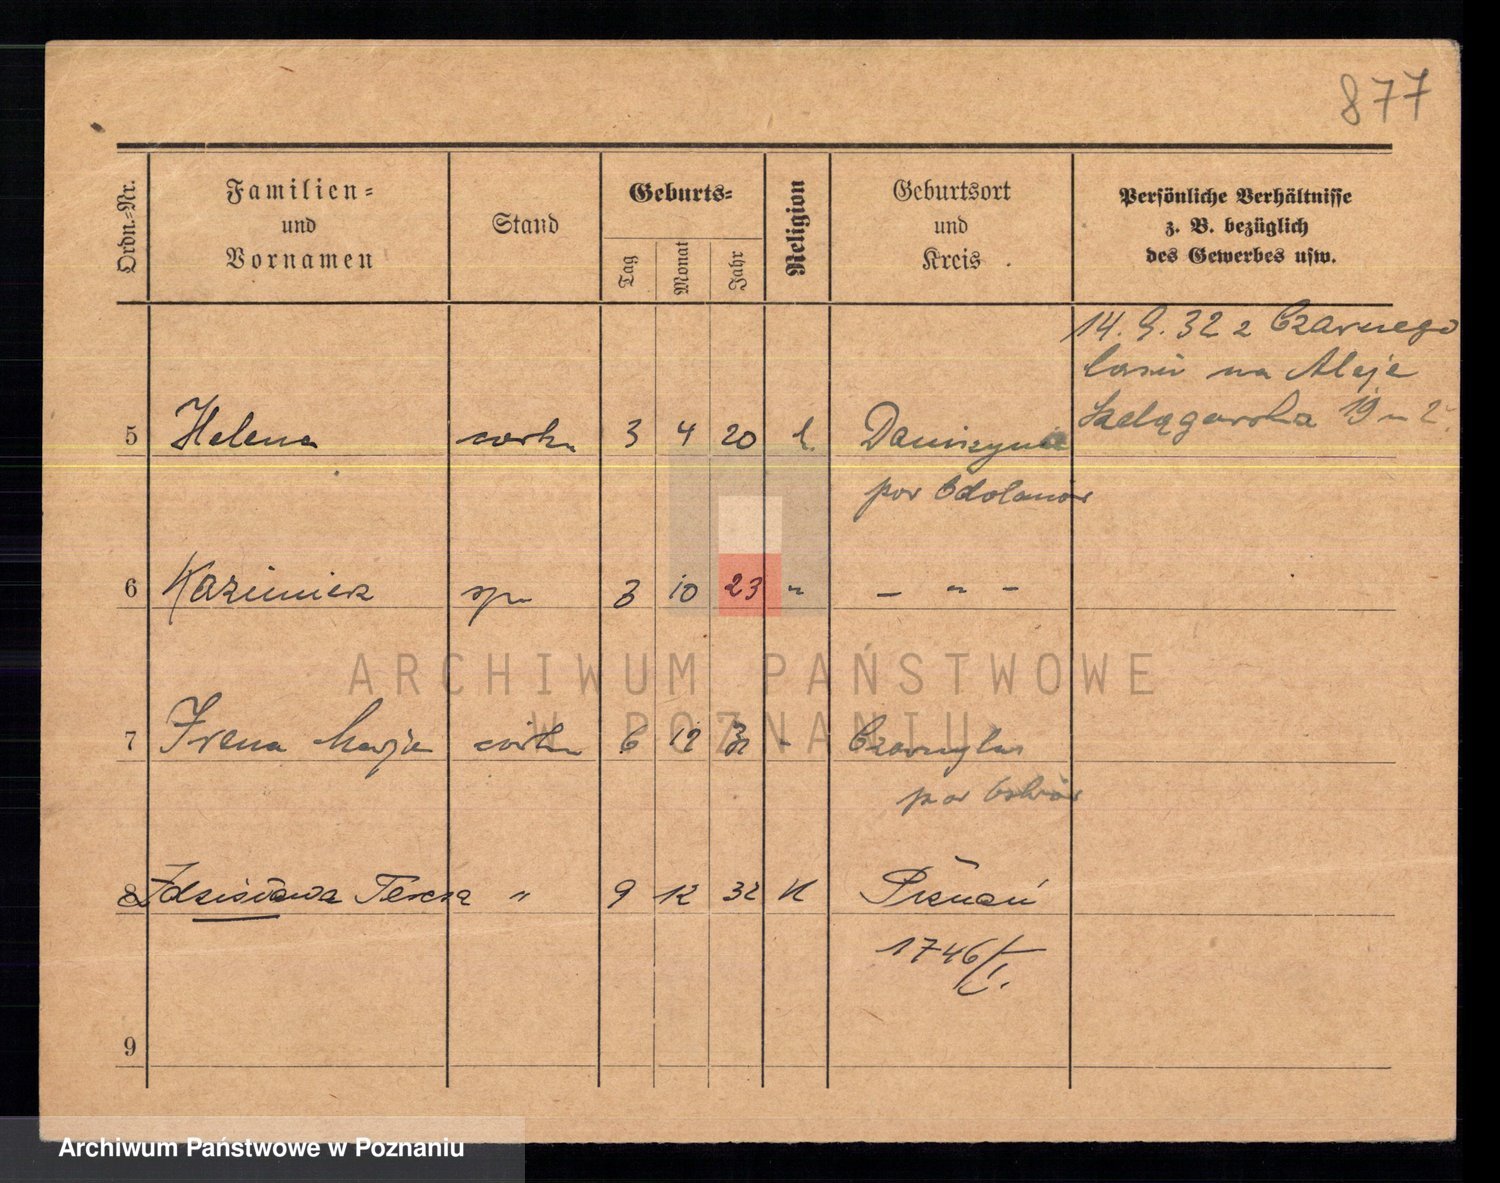 877
Ordn.-Nr.
Familien-
und
Vornamen
Stand
Geburts-
Tag
Monat
Jahr
Religion
Geburtsort
und
Kreis
Persönliche Verhältnisse
z. B. bezüglich
des Gewerbes usw.
14. 9. 32 z Czarnego
lasu na Aleje
Szelągowska 19 m 2.
5 Helena córka 3 4 20 k. Daniszyna
pow Odolanów
6 Kazimierz syn 3 10 23 " – " –
7 Irena Marja córka 6 12 " Czarnylas
pow Ostrów
8 Zdzisława Teresa " 9 12 32 K Poznań
1746/I.
9
ARCHIWUM PAŃSTWOWE
W POZNANIU
Archiwum Państwowe w Poznaniu